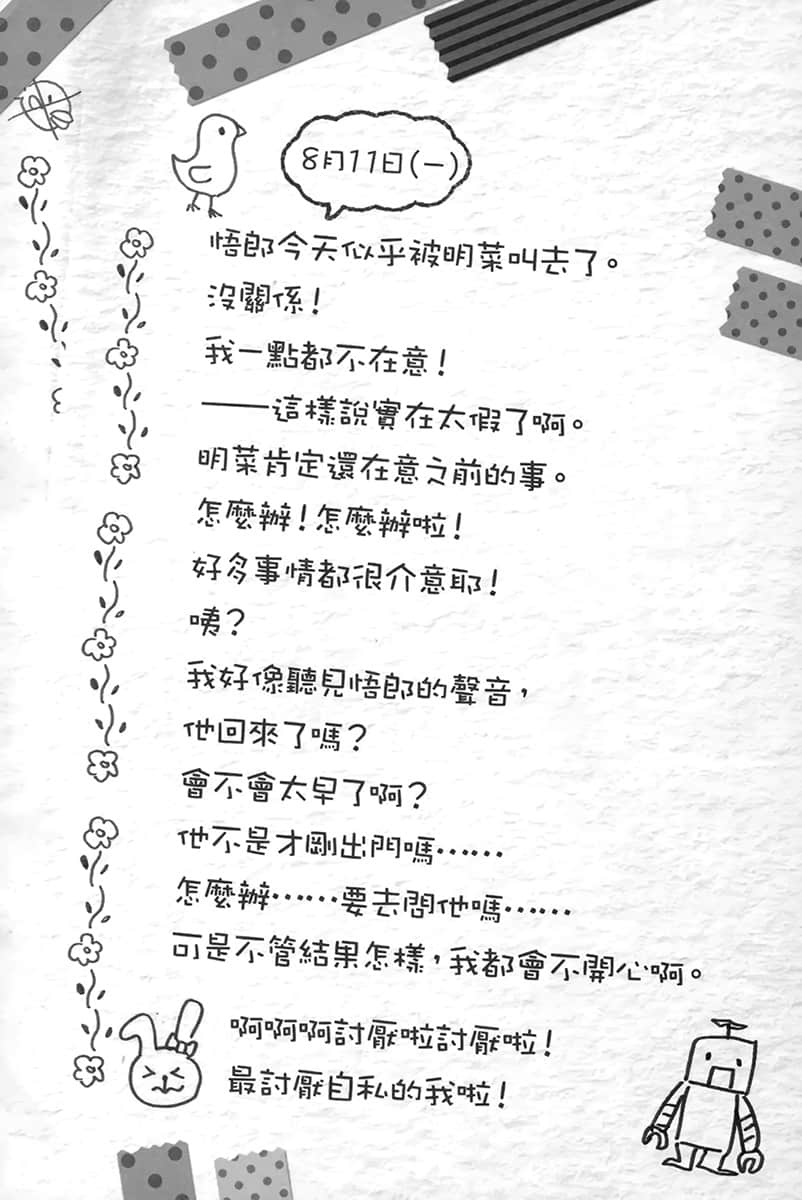 8月11日(一)
悟郎今天似乎被明菜叫去了。
沒關係！
我一點都不在意！
——這樣說實在太假了啊。
明菜肯定還在意之前的事。
怎麼辦！怎麼辦啦！
好多事情都很介意耶！
咦？
我好像聽見悟郎的聲音，
他回來了嗎？
會不會太早了啊？
他不是才剛出門嗎⋯⋯
怎麼辦⋯⋯要去問他嗎⋯⋯
可是不管結果怎樣，我都會不開心啊。
啊啊啊討厭啦討厭啦！
最討厭自私的我啦！